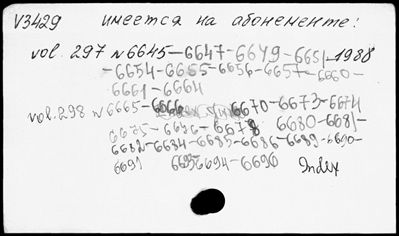 V3429 имеется на абонементе:
vol. 297 N 6645-6647-6649-6651-1988
-6654-6655-6656-6657-6660-
6661-6664
vol. 298 N 6665-6666 6670-6673-6674
6675-6676-6678 6680-6681-
6682-6684-6685-6686-6689-6690-
6691 6693 6694-6690 Index